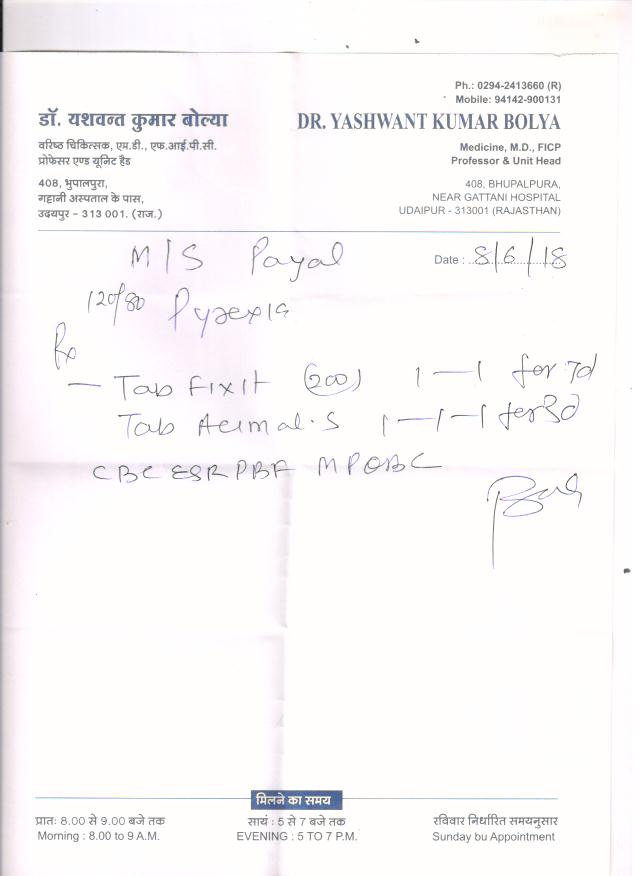 Ph.: 0294-2413660 (R)
Mobile: 94142-900131
डॉ. यशवन्त कुमार बोल्या
DR. YASHWANT KUMAR BOLYA
वरिष्ठ चिकित्सक, एम.डी., एफ.आई.पी.सी.
प्रोफेसर एण्ड यूनिट हैड
Medicine, M.D., FICP
Professor & Unit Head
408, भुपालपुरा,
गट्टानी अस्पताल के पास,
उदयपुर - 313 001. (राज.)
408, BHUPALPURA,
NEAR GATTANI HOSPITAL
UDAIPUR - 313001 (RAJASTHAN)
M/S Payal
Date : 8/6/18
120/80 Pyrexia
Rx
— Tab Fixit (200) 1—1 for 7d
Tab Acimal.S 1—1—1 for 3d
CBC ESR PBF MP QBC
मिलने का समय
प्रातः 8.00 से 9.00 बजे तक
Morning : 8.00 to 9 A.M.
सायं : 5 से 7 बजे तक
EVENING : 5 TO 7 P.M.
रविवार निर्धारित समयनुसार
Sunday bu Appointment